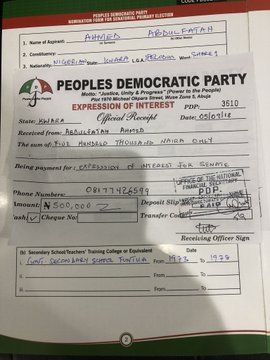 PEOPLES DEMOCRATIC PARTY
NOMINATION FORM FOR SENATORIAL PRIMARY ELECTION
1. Name of Aspirant: AHMED ABDULFATAH
2. Constituency:
3. Nationality: NIGERIAN State KWARA L.G.A. IFELODUN Ward SHARE 1
PEOPLES DEMOCRATIC PARTY
Motto: "Justice, Unity & Progress" (Power to the People)
Plot 1970 Micheal Okpara Street, Wuse Zone 5, Abuja
EXPRESSION OF INTEREST PDP: 3510
Official Receipt
State: KWARA Date: 05/09/18
Received from: ABDULFATAH AHMED
The sum of: FIVE HUNDRED THOUSAND NAIRA ONLY
Being payment for: EXPRESSION OF INTEREST FOR SENATE
OFFICE OF THE NATIONAL
FINANCIAL SECRETARY
PDP
PAID
Phone Numbers:
Amount: ₦500,000 Deposit Slip
Cash Cheque No: Transfer Code
Receiving Officer Sign
(b) Secondary School/Teachers' Training College or Equivalent Date
From To
i. GOVT. SECONDARY SCHOOL FUNTUA From 1973 To 1978
ii. From To
iii. From To
2